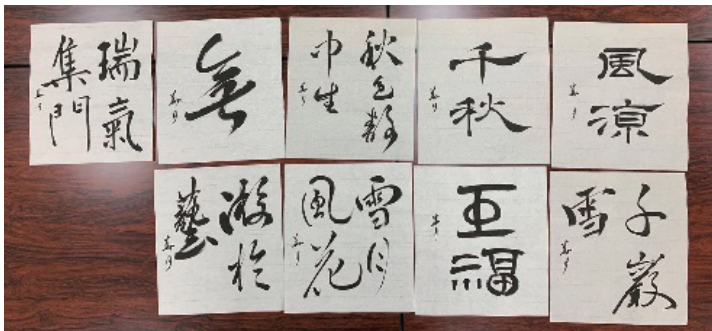 瑞氣
集門
無
秋色静
中生
千秋
風涼
游於
藝
雪月
風花
五福
千巌
雪